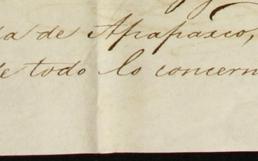 a de Apapasco,
de todo lo concern